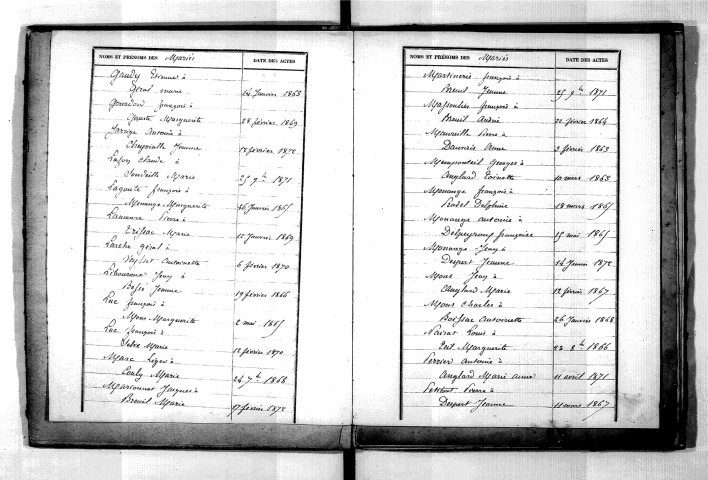 NOMS ET PRÉNOMS DES Mariés DATE DES ACTES
Gaudy Etienne à
Géral marie 14 Janvier 1863
Gourdon françois à
Goutte Marguerite 28 février 1869
Jarrige Antoine à
Jeanne 12 février 1872
Lafon claude à
Marie 25 9bre 1871
Lagoutte françois à
Monange Marguerite 26 Janvier 1865
Laurence Pierre à
Marie 12 Janvier 1869
Larche géral à
Antoinette 6 février 1870
Jean à
Jeanne 19 février 1866
Luc françois à
Mons Marguerite 2 mai 1865
Luc françois à
Marie 12 février 1870
Marc Léger à
Marie 24 7bre 1868
Marionnet Jacques à
Breuil Marie 17 février 1872
NOMS ET PRÉNOMS DES Mariés DATE DES ACTES
Martinerie françois à
Breuil Jeanne 25 9bre 1871
françois à
Breuil 22 février 1864
Pierre à
Anne 3 février 1863
Georges à
Anglard Toinette 10 mars 1863
Monange françois à
Delphine 18 mars 1865
Monange antoine à
Delpeyroux françoise 15 mai 1865
Monange Jean à
Despert Jeanne 14 Janvier 1872
Mons Jean à
Anglard Marie 12 février 1867
Mons Charles à
Boissac Antoinette 26 Janvier 1868
Nairat Louis à
Marguerite 23 8bre 1866
Perrier Antoine à
Anglard Marie anne 11 avril 1871
Pierre à
Despert Jeanne 11 mars 1867